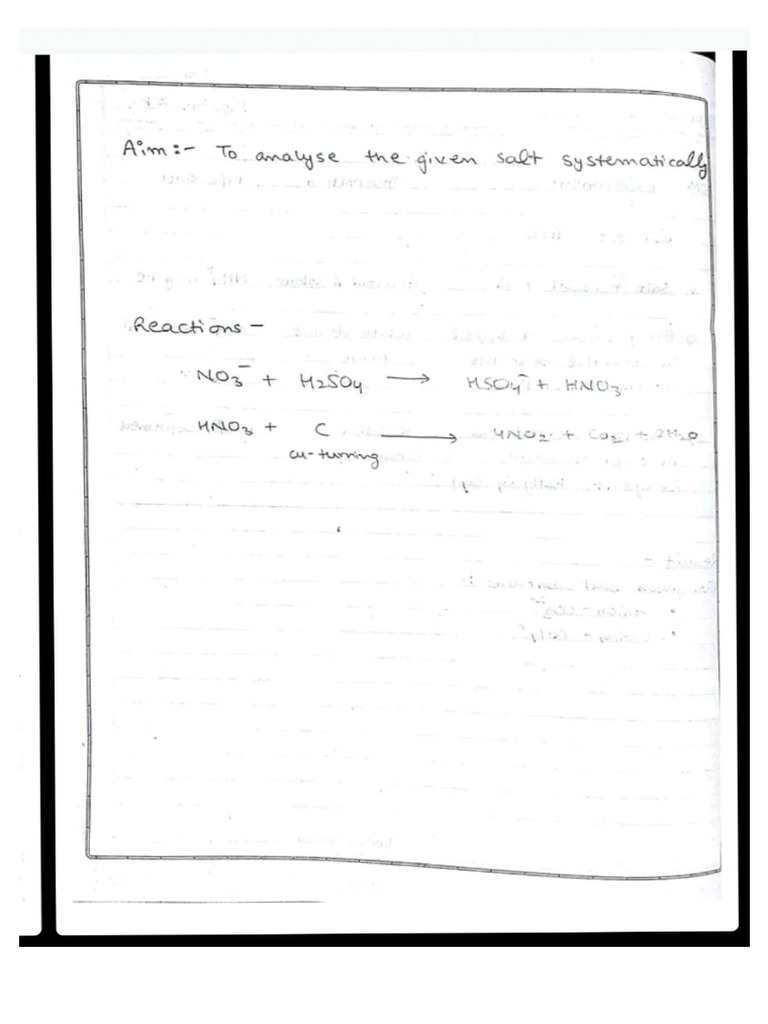 Aim:- To analyse the given salt systematically
Reactions -
NO3⁻ + H2SO4 → HSO4⁻ + HNO3
HNO3 + C → 4NO2 + CO2 + 2H2O
cu-turning